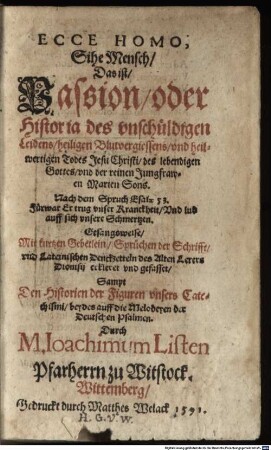 ECCE HOMO,
Sihe Mensch/
Das ist/
Passion/oder
Historia des vnschüldigen
Leidens/heiligen Blutvergiessens/vnd heil-
wertigen Todes Jesu Christi/des lebendigen
Gottes/vnd der reinen Jungfraw-
en Marien Sons.
Nach dem Spruch Esaiæ 53.
Fürwar Er trug vnser Kranckheit/Vnd lud
auff sich vnsere Schmertzen.
Gesangsweise/
Mit kurtzen Gebetlein/Sprüchen der Schrifft/
vnd Lateinischen Denckzetteln des Alten Lerers
Dionysij erkleret vnd gefasset/
Sampt
Den Historien der Figuren vnsers Cate-
chismi/beydes auff die Melodeyen der
Deutschen Psalmen.
Durch
M. Ioachimum Listen
Pfarherrn zu Witstock.
Wittemberg/
Gedruckt durch Matthes Welack 1591.
H. G. V. W.